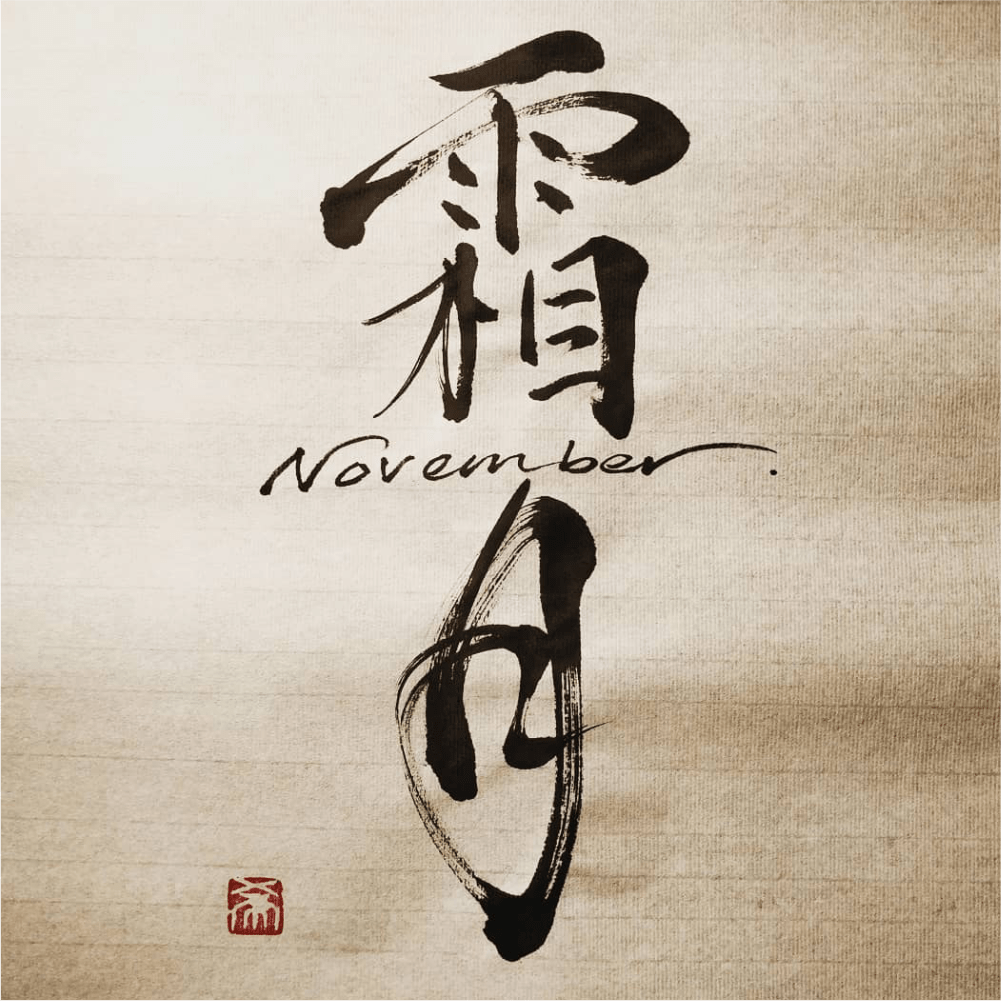 霜
November.
月